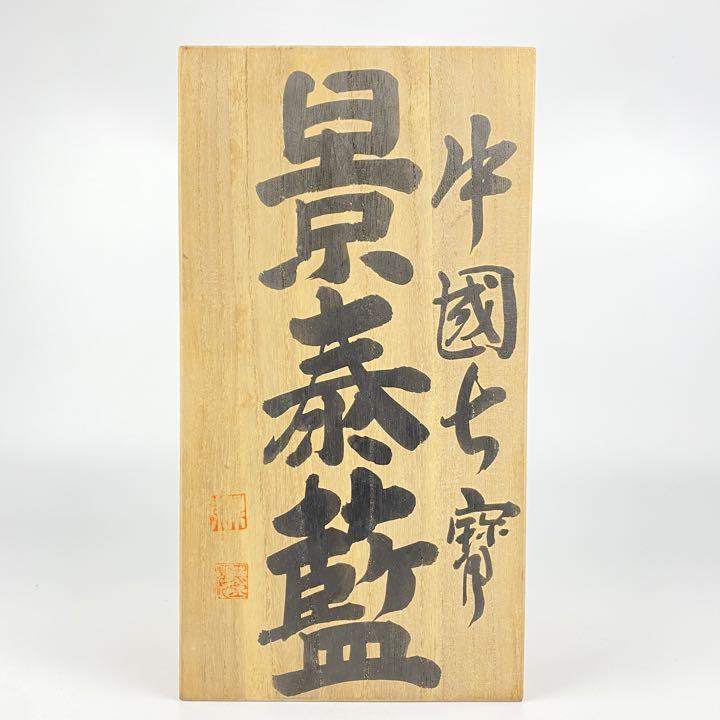 中國七寳
景泰藍